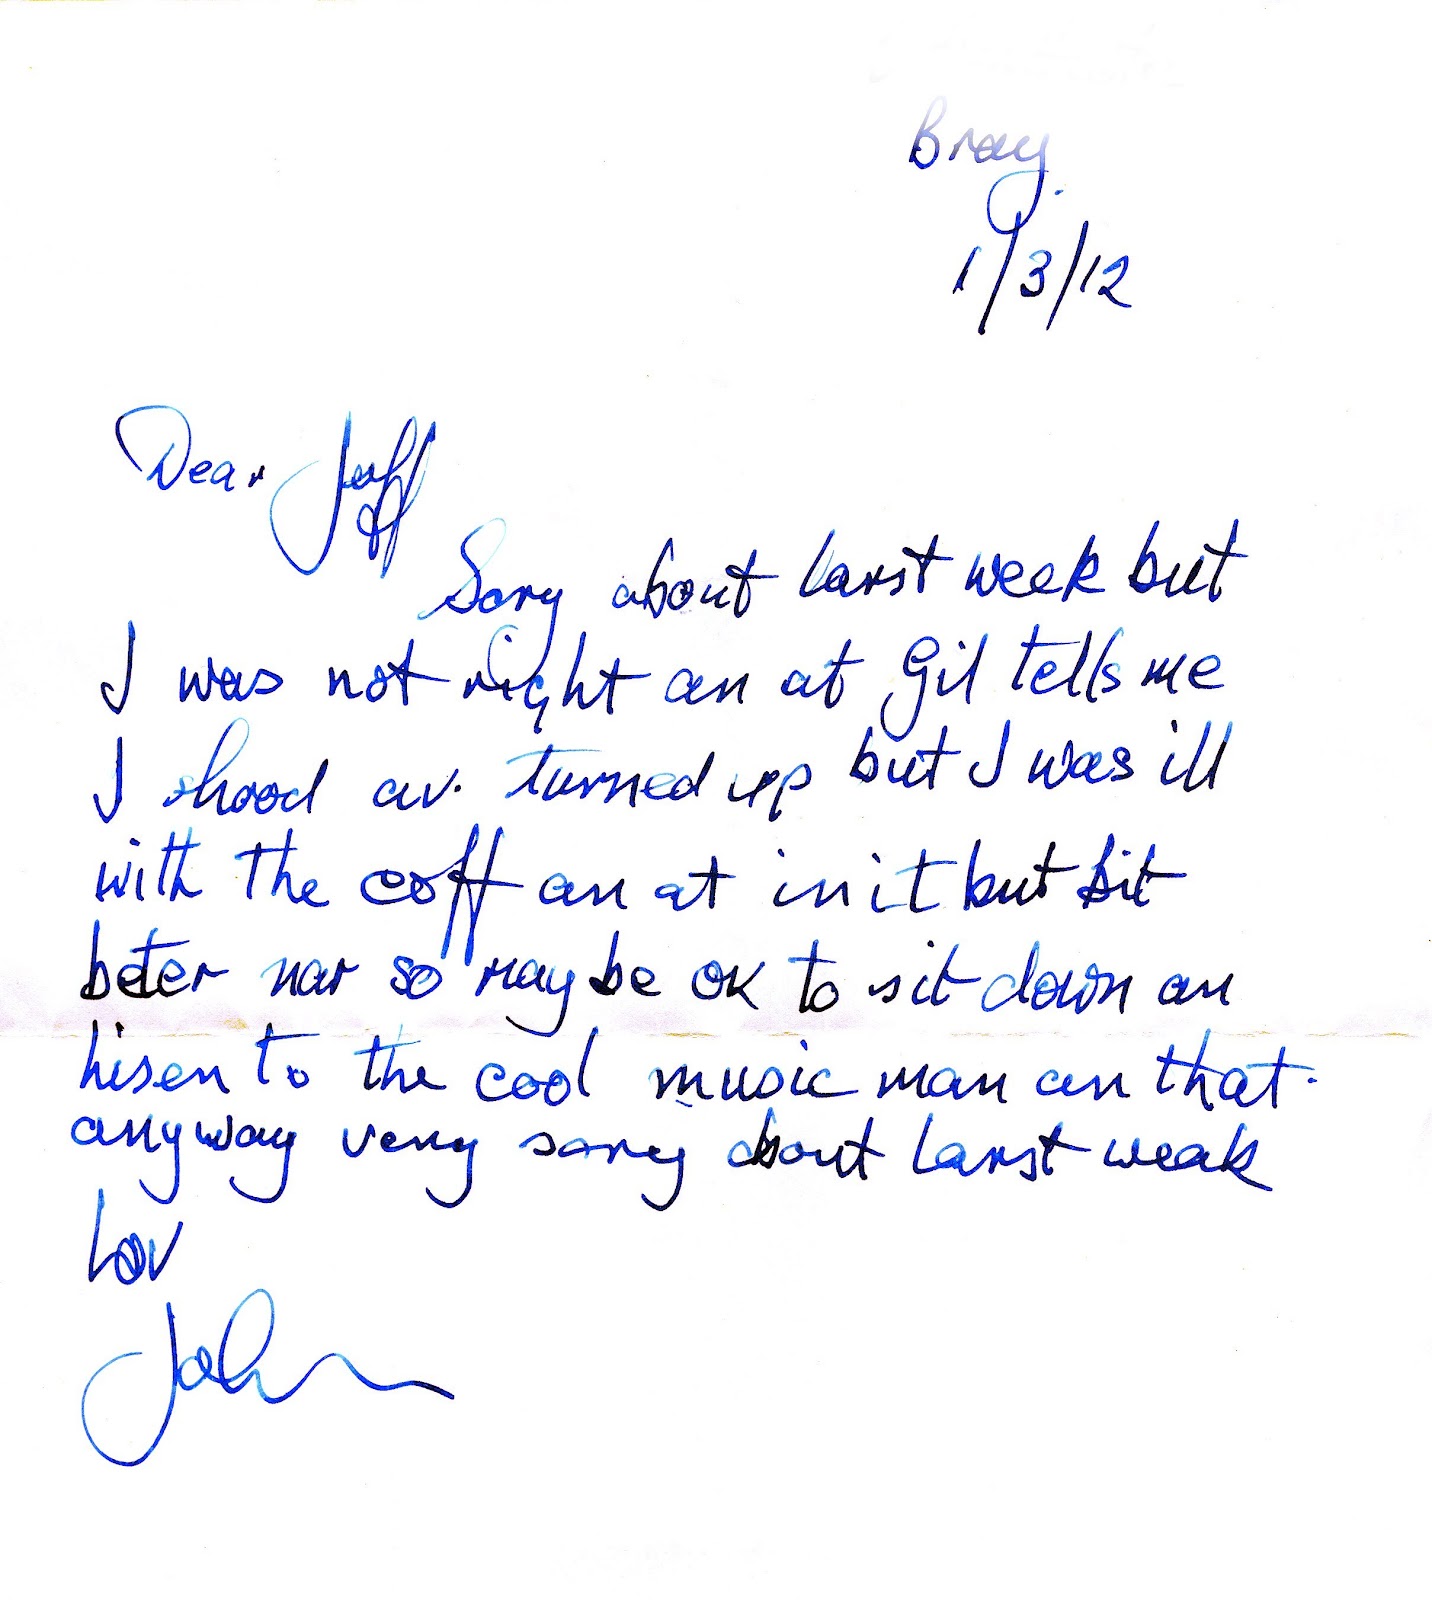 Bray.
1/3/12
Dear Jeff
Sory about larst week but
I was not right an at Gil tells me
I shood av. turned up but I was ill
with the coff an at in it but bit
beter nar so may be OK to sit down an
lisen to the cool music man an that.
anyway very sorey about larst weak
Lov
John